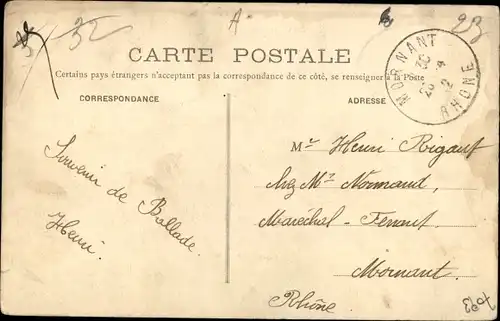 32
A
23
CARTE POSTALE
Certains pays étrangers n'acceptant pas la correspondance de ce côté, se renseigner à la Poste
CORRESPONDANCE
ADRESSE
MORNANT
RHONE
Souvenir de Ballade.
Henri.
Mr Henri Rigaut
chez Mr Normand,
Maréchal-Ferrant,
Mornant.
Rhône.